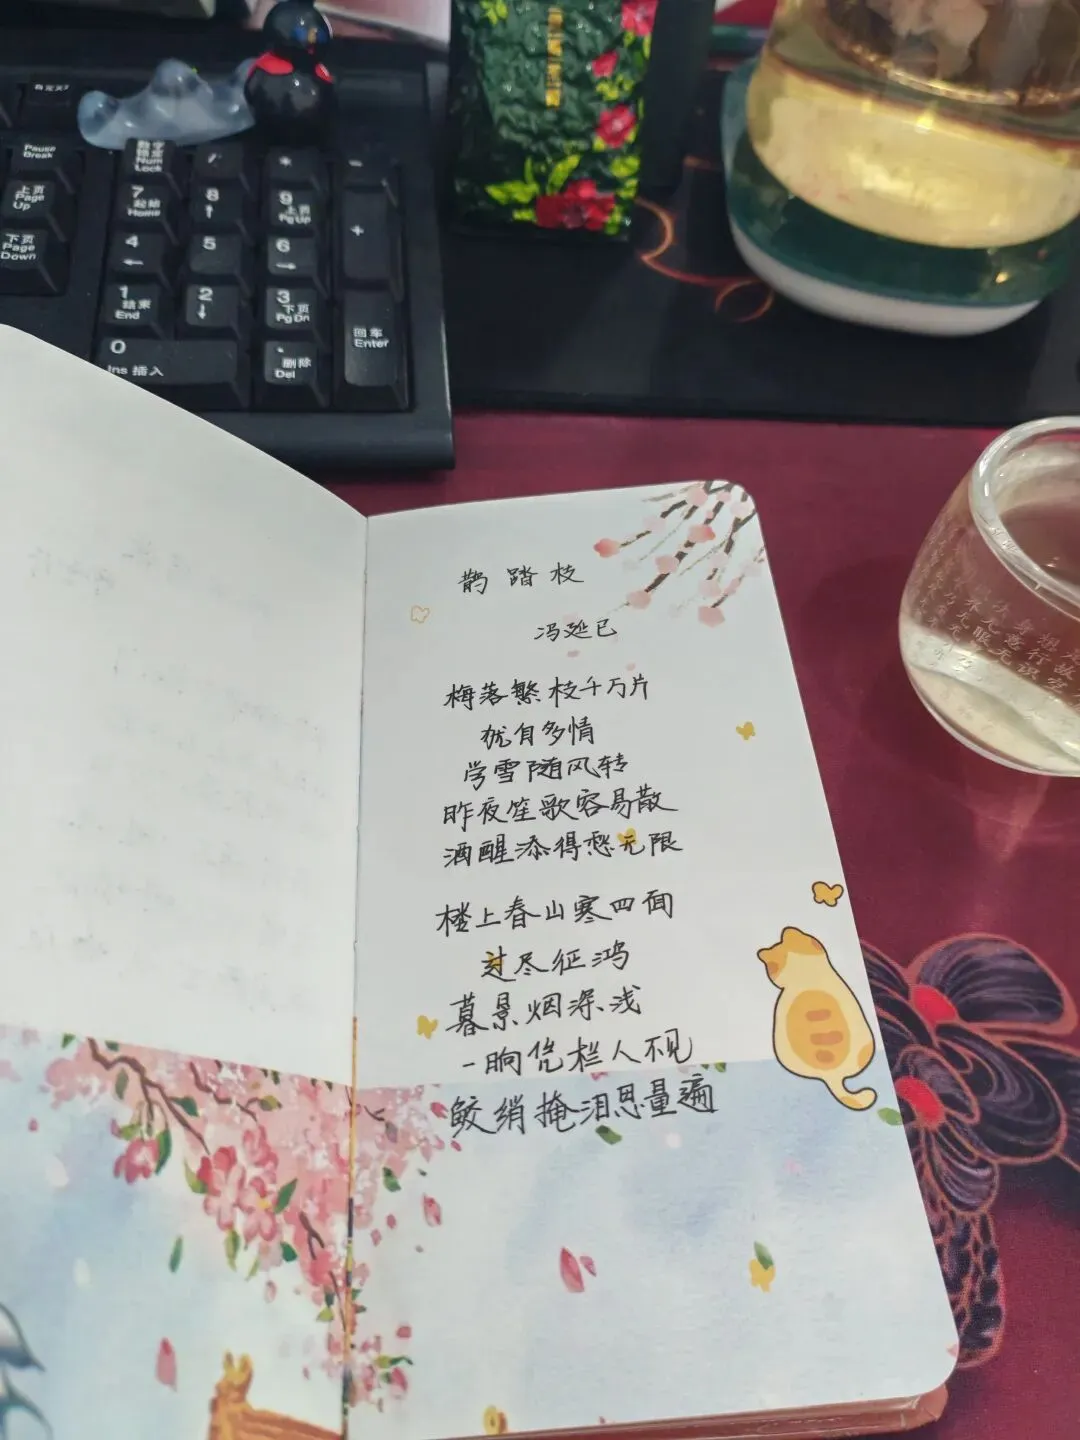 自定义2
Pause
Break
数字
锁定
Num
Lock
/
*
-
上页
Page
Up
7
起始
Home
8
↑
9
上页
PgUp
+
下页
Page
Down
4
←
5
6
→
1
结束
End
2
↓
3
下页
PgDn
回车
Enter
0
Ins 插入
.
删除
Del
鹊踏枝
冯延巳
梅落繁枝千万片
犹自多情
学雪随风转
昨夜笙歌容易散
酒醒添得愁无限
楼上春山寒四面
过尽征鸿
暮景烟深浅
一晌凭栏人不见
鲛绡掩泪思量遍